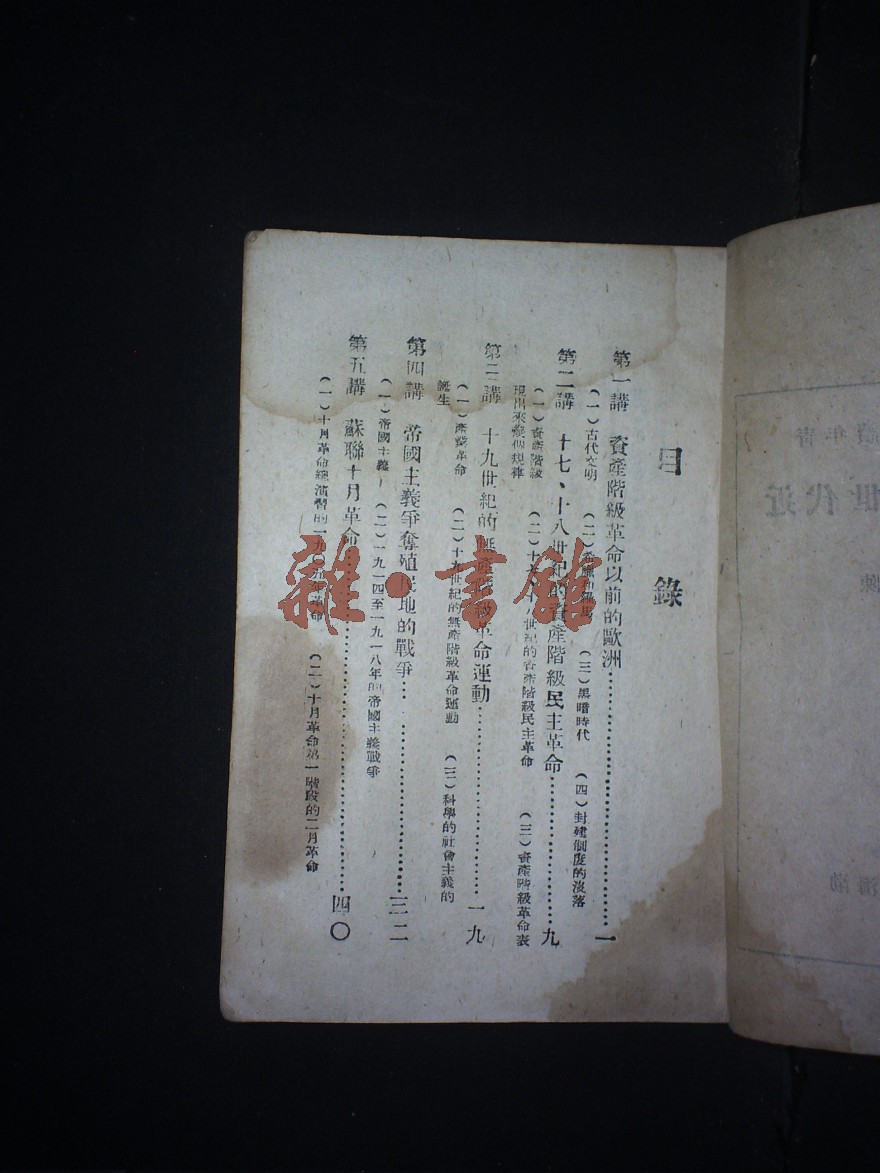 目錄
第一講 資產階級革命以前的歐洲……一
（一）古代文明 （二）希臘和羅馬 （三）黑暗時代 （四）封建制度的沒落
第二講 十七、十八世紀的資產階級民主革命……九
（一）資產階級 （二）十七、十八世紀的資產階級民主革命 （三）資產階級革命表
現出來幾個規律
第三講 十九世紀的無產階級革命運動……一九
（一）產業革命 （二）十九世紀的無產階級革命運動 （三）科學的社會主義的
誕生
第四講 帝國主義爭奪殖民地的戰爭……三二
（一）帝國主義 （二）一九一四至一九一八年的帝國主義戰爭
第五講 蘇聯十月革命……四〇
（一）十月革命總演習的一九〇五年革命 （二）十月革命第一階段的二月革命
雜·書館